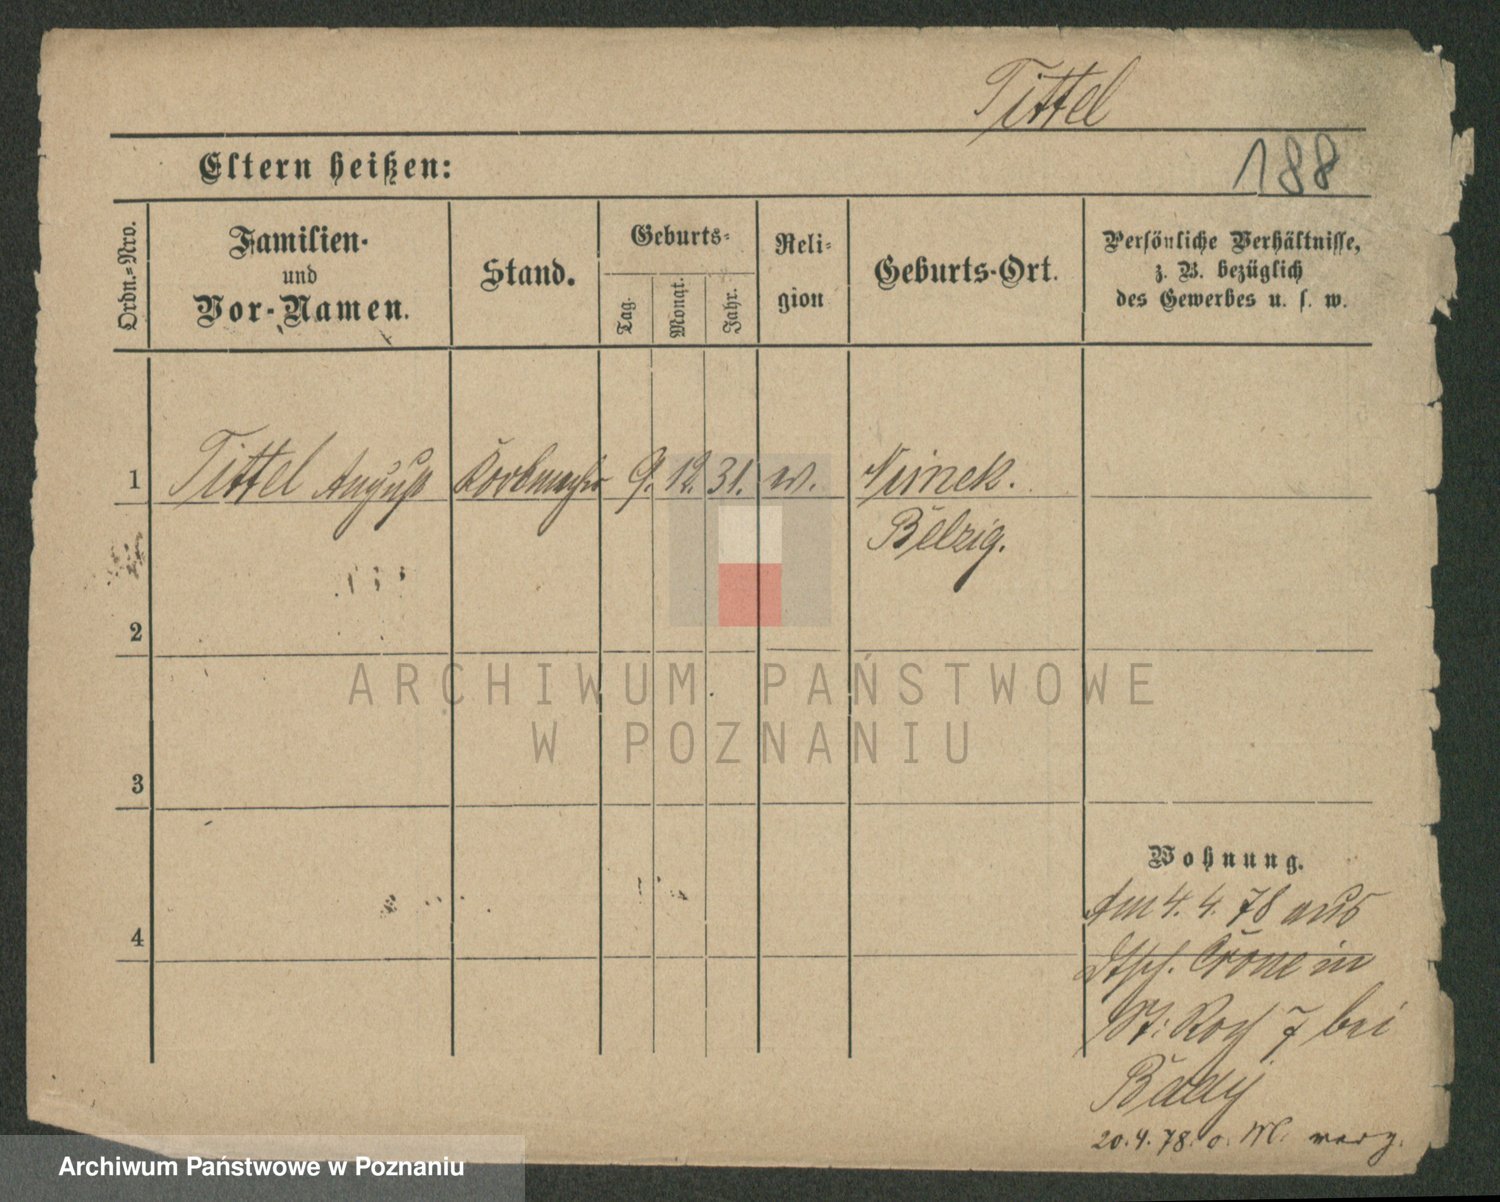 Tittel
188
Eltern heißen:
Ordn.-Nro.
Familien-
und
Vor-Namen.
Stand.
Geburts-
Tag.
Monat.
Jahr.
Reli-
gion
Geburts-Ort.
Persönliche Verhältnisse,
z. B. bezüglich
des Gewerbes u. s. w.
1 Tittel August Korbmacher 9. 12. 31. ev. Niemek.
Belzig.
2
3
4
ARCHIWUM PAŃSTWOWE
W POZNANIU
Wohnung.
Am 4. 4. 78 aus
Dtsch. Crone in
St: Roch 7 bei
20. 4. 78. o. verz.
Archiwum Państwowe w Poznaniu